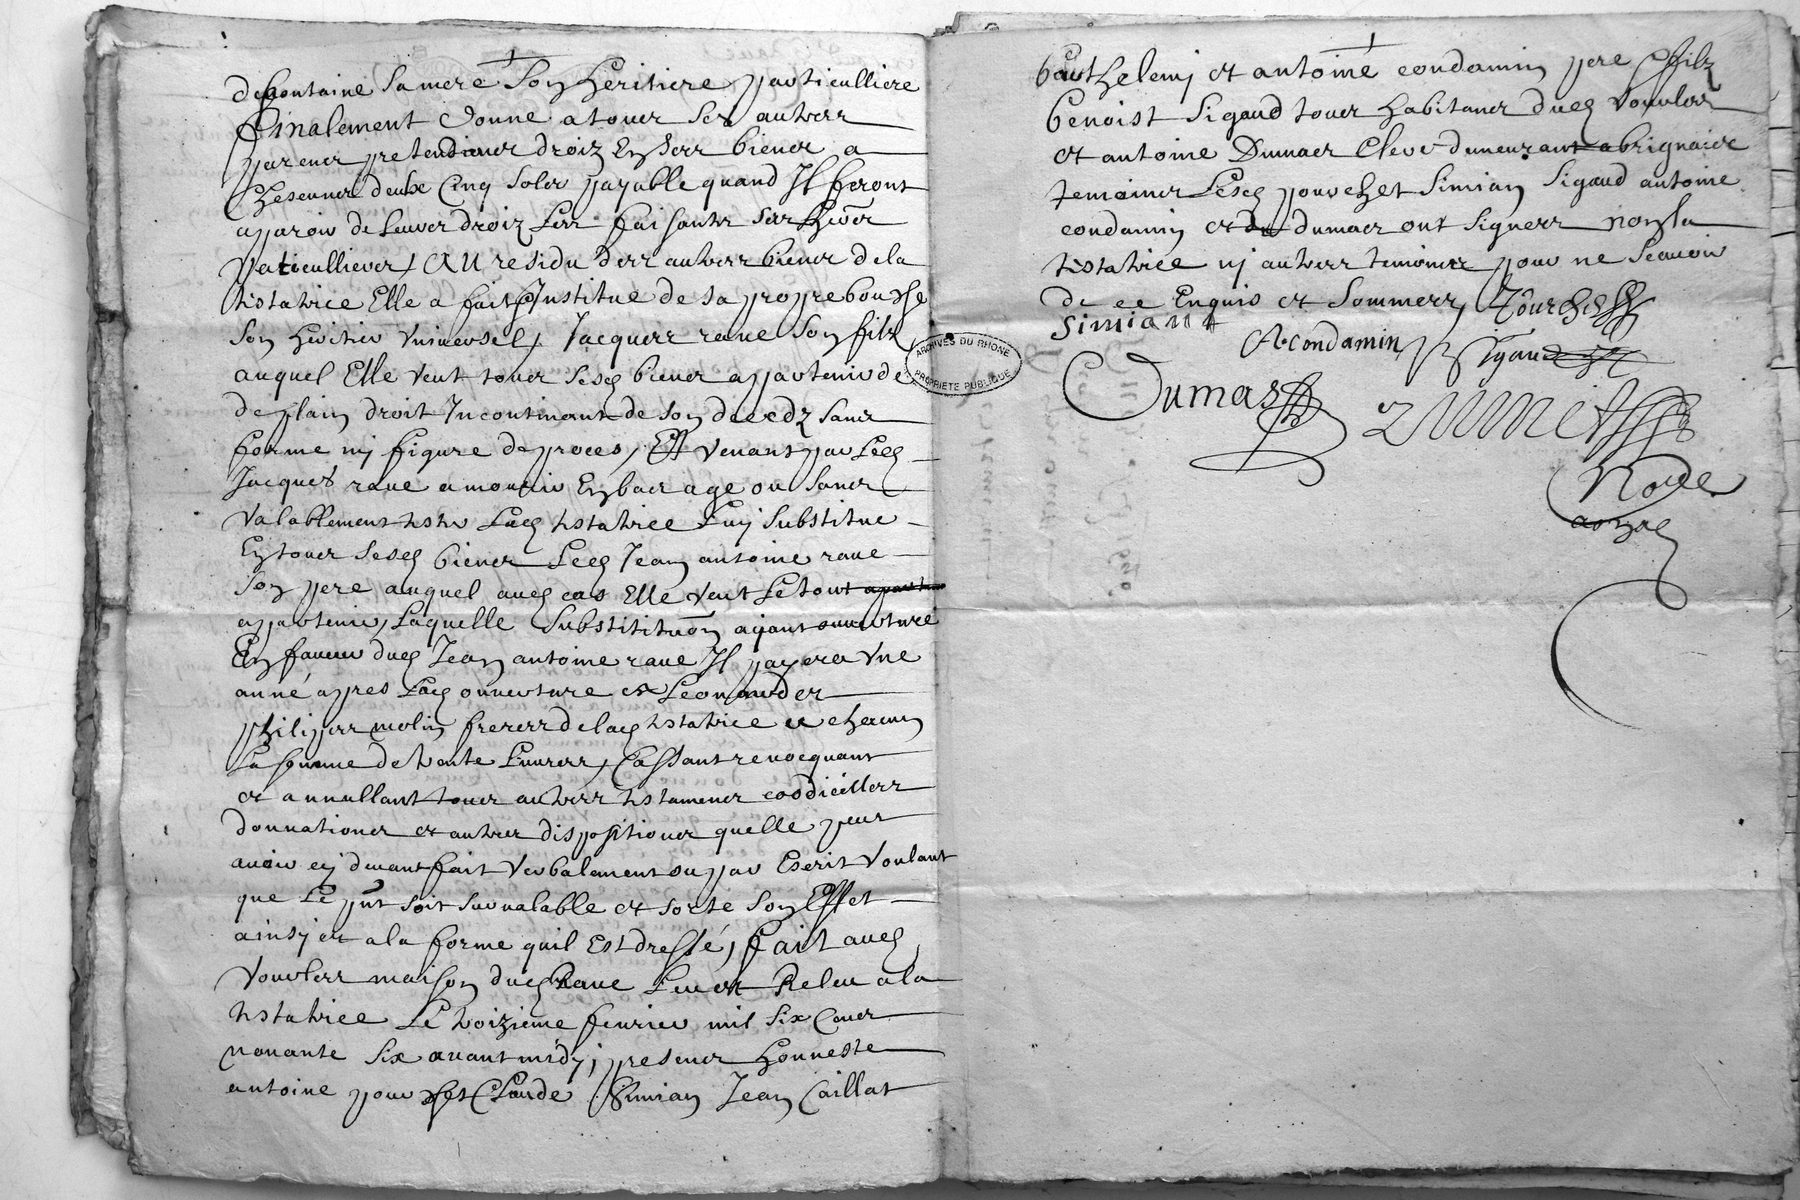 defontaine sa mere son heritiere particulliere
finalement donne a tous ses autres
parens pretendans droiz en sers biens a
chescuns deulx cinq solz payable quand Il feront
aparoir de leurs droiz les faisants ses hers
particulliers, Au residu des autres biens de la
testatrice Elle a fait Institue de sa propre bouche
son heritier vniversel, Jacques raue son filz
auquel Elle veut tous sesd biens appartenir de
de plain droit Incontinant de son decedz sans
forme nj figure de proces, Et venant par led
Jacques raue a mourir En bas age ou sans
valablement tester lad testatrice luy substitue
En tous sesd biens led Jean antoine raue
son pere auquel aud cas Elle veut le tout
appartenir, laquelle substitition ayant ouuerture
En faueur dud Jean antoine raue Il payera vne
anné apres lad ouuerture es leonard et
philippes molin freres de lad testatrice a chacun
la somme de trente liures, Cassant revocquant
et annullant tous autres testamens coodicilles
donnations et autres dispositions quelle peut
auoir cy deuant fait verbalement ou par Escrit voulant
que le pnt soit seul valable et sorte son Effet
ainsy et a la forme quil Est dressé, fait aud
vourles maison dud Raue leu et Releu a la
testatrice le troizieme feurier mil six Cens
nonante six auant midy; presens honneste
antoine pourchet Claude Simian Jean Caillat
barthelemj et antoine condamin pere & filz
benoist Sigaud tous habitans dud vourles
et antoine Dumas Clerc demeurant a brignais
temoins lesd pourchet Simian Sigaud antoine
condamin et dumas ont signes non la
testatrice nj autres temoins pour ne scauoir
de ce Enquis et sommes, Pourchet
simiant
A. condamin B Sigaud
Dumas
ARCHIVES DU RHONE
PROPRIETE PUBLIQUE